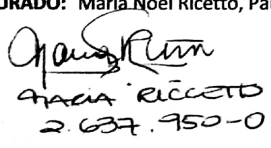 JURADO: María Noel Riccetto, Pa
MARIA RICCETTO
2.637.950-0